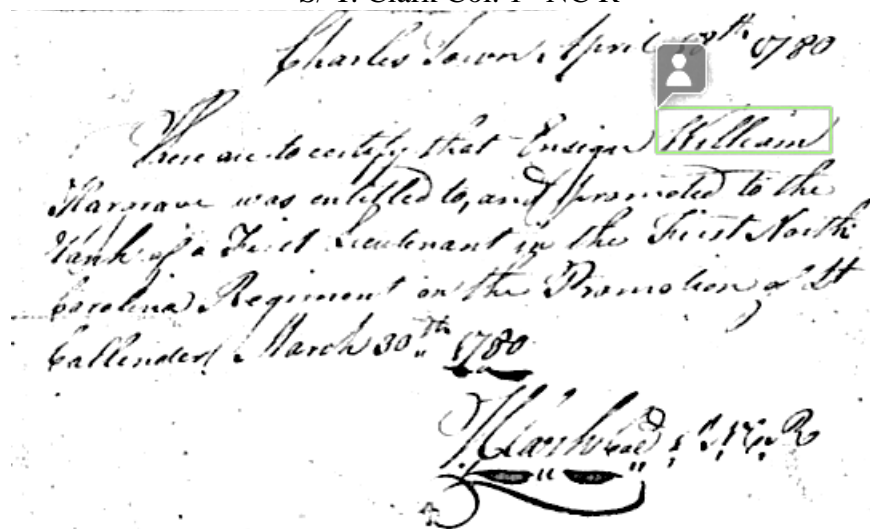 S/ T. Clark Col. 1st NC R
Charles Town, April 18th 1780
These are to certify that Ensign William
Hargrave was entitled to, and promoted to the
Rank of a First Lieutenant in the First North
Carolina Regiment on the Promotion of Lt
Callender March 30th 1780
T Clark Col 1st N C R